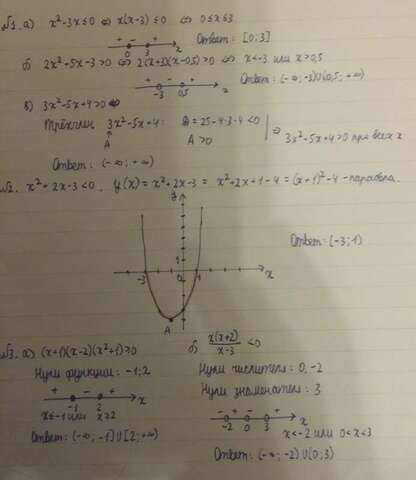 №1. а) x²-3x≤0 ⇔ x(x-3)≤0 ⇔ 0≤x≤3
+ - +
0 3 x
Ответ: [0;3]
б) 2x²+5x-3>0 ⇔ 2(x+3)(x-0,5)>0 ⇔ x<-3 или x>0,5
+ - +
-3 0,5 x
Ответ: (-∞;-3)∪(0,5;+∞)
в) 3x²-5x+4>0 ⇔
Трёхчлен 3x²-5x+4: D=25-4·3·4<0
A A>0
⇒ 3x²-5x+4>0 при всех x
Ответ: (-∞;+∞)
№2. x²+2x-3<0. y(x)=x²+2x-3=x²+2x+1-4=(x+1)²-4-парабола.
y
Ответ: (-3;1)
1
-3 0 1 x
A
№3. а) (x+1)(x-2)(x²+1)≥0
Нули функции: -1; 2
+ - +
-1 2 x
x≤-1 или x≥2
Ответ: (-∞;-1]∪[2;+∞)
б) x(x+2)/x-3 <0
Нули числителя: 0, -2
Нули знаменателя: 3
- + - +
-2 0 3 x
x<-2 или 0<x<3
Ответ: (-∞;-2)∪(0;3)